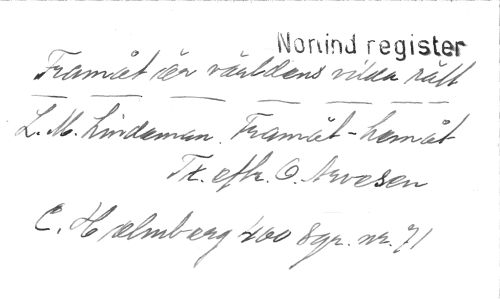 Norlind register
Framåt är världens vilda rätt
L. M. Lindeman. Framåt - hemåt
Tx. efter. O. Arvesen
C. Holmberg 400 Sgr. nr. 71